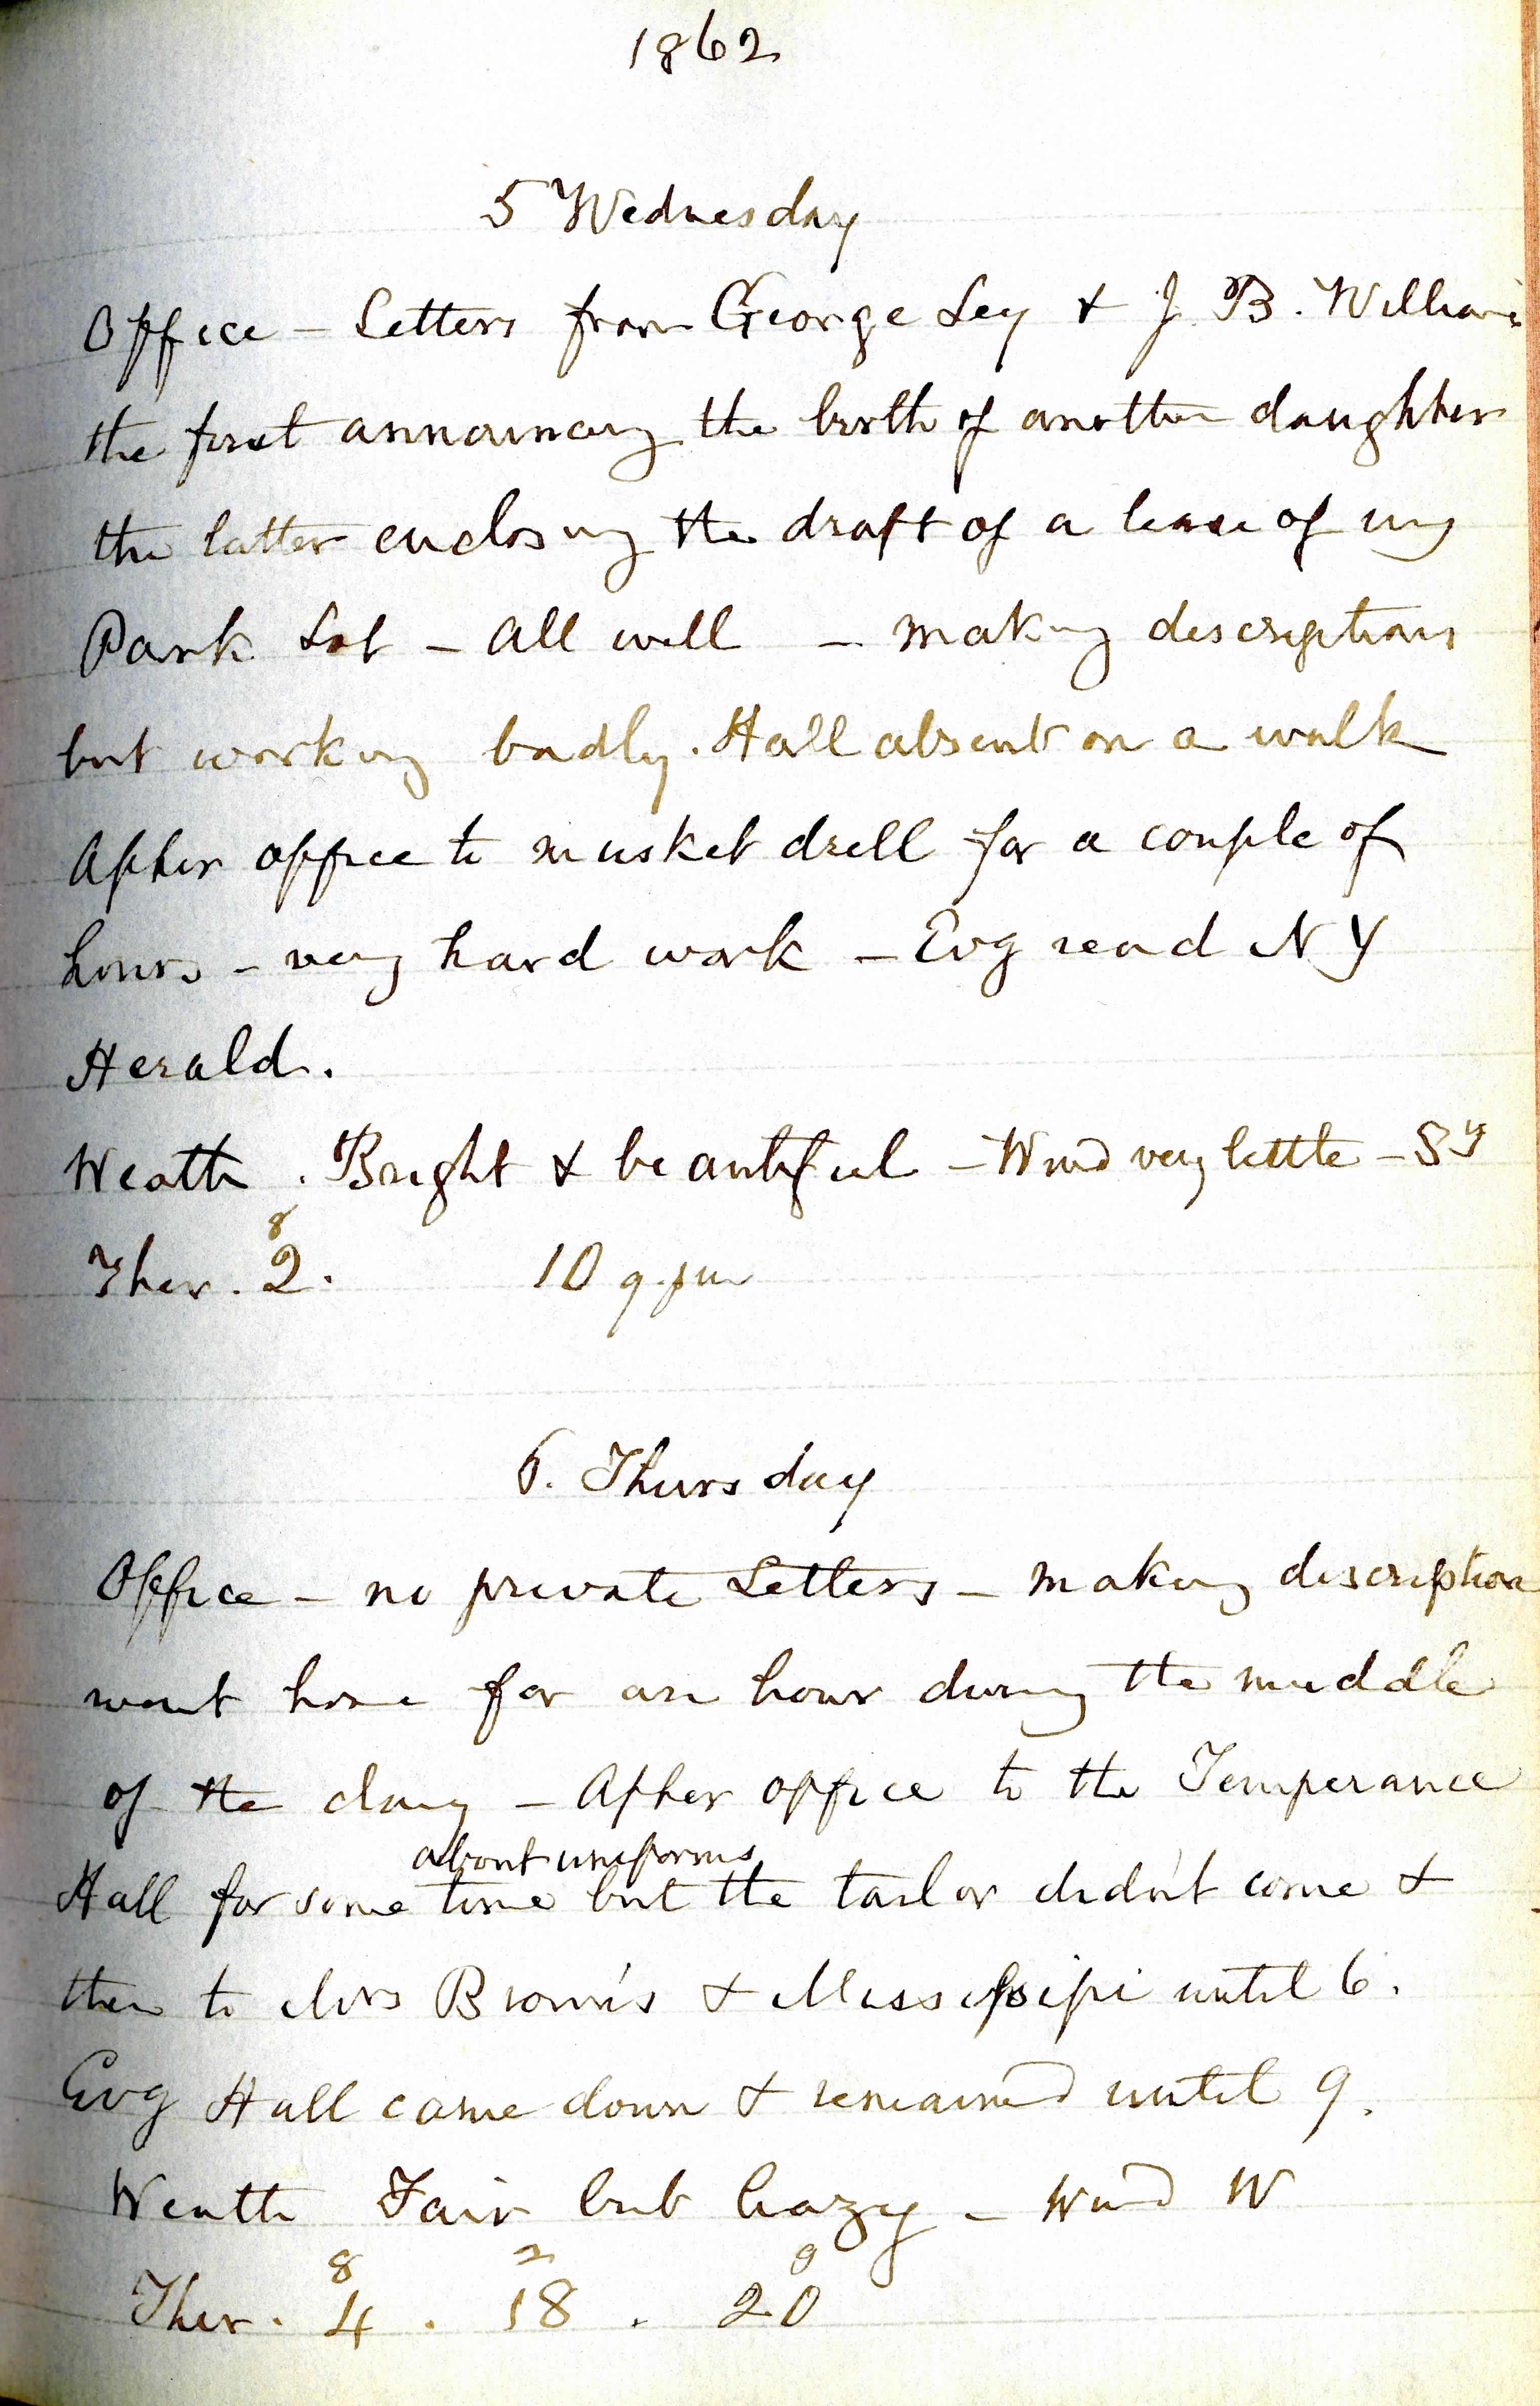 1862
5 Wednesday
Office - Letters from George Ley & J. B. Williams
the first announcing the birth of another daughter
the latter enclosing the draft of a lease of my
Park Lot - all well - making descriptions
but working badly. Hall absent on a walk
After office to musket drill for a couple of
hours - very hard work - Evg read N Y
Herald.
Weath. Bright & beautiful - Wind very little - Sy
8
Ther. 2. 10 9.pm
6. Thursday
Office - no private Letters - making description
went home for an hour during the middle
of the day - After office to the Temperance
about uniforms
Hall for some time but the tailor didn't come &
then to Mrs Brown's & Mississipi until 6.
Evg Hall came down & remained until 9.
Weath Fair but hazy - Wind W
8 2 9
Ther. 4 . 18 . 20